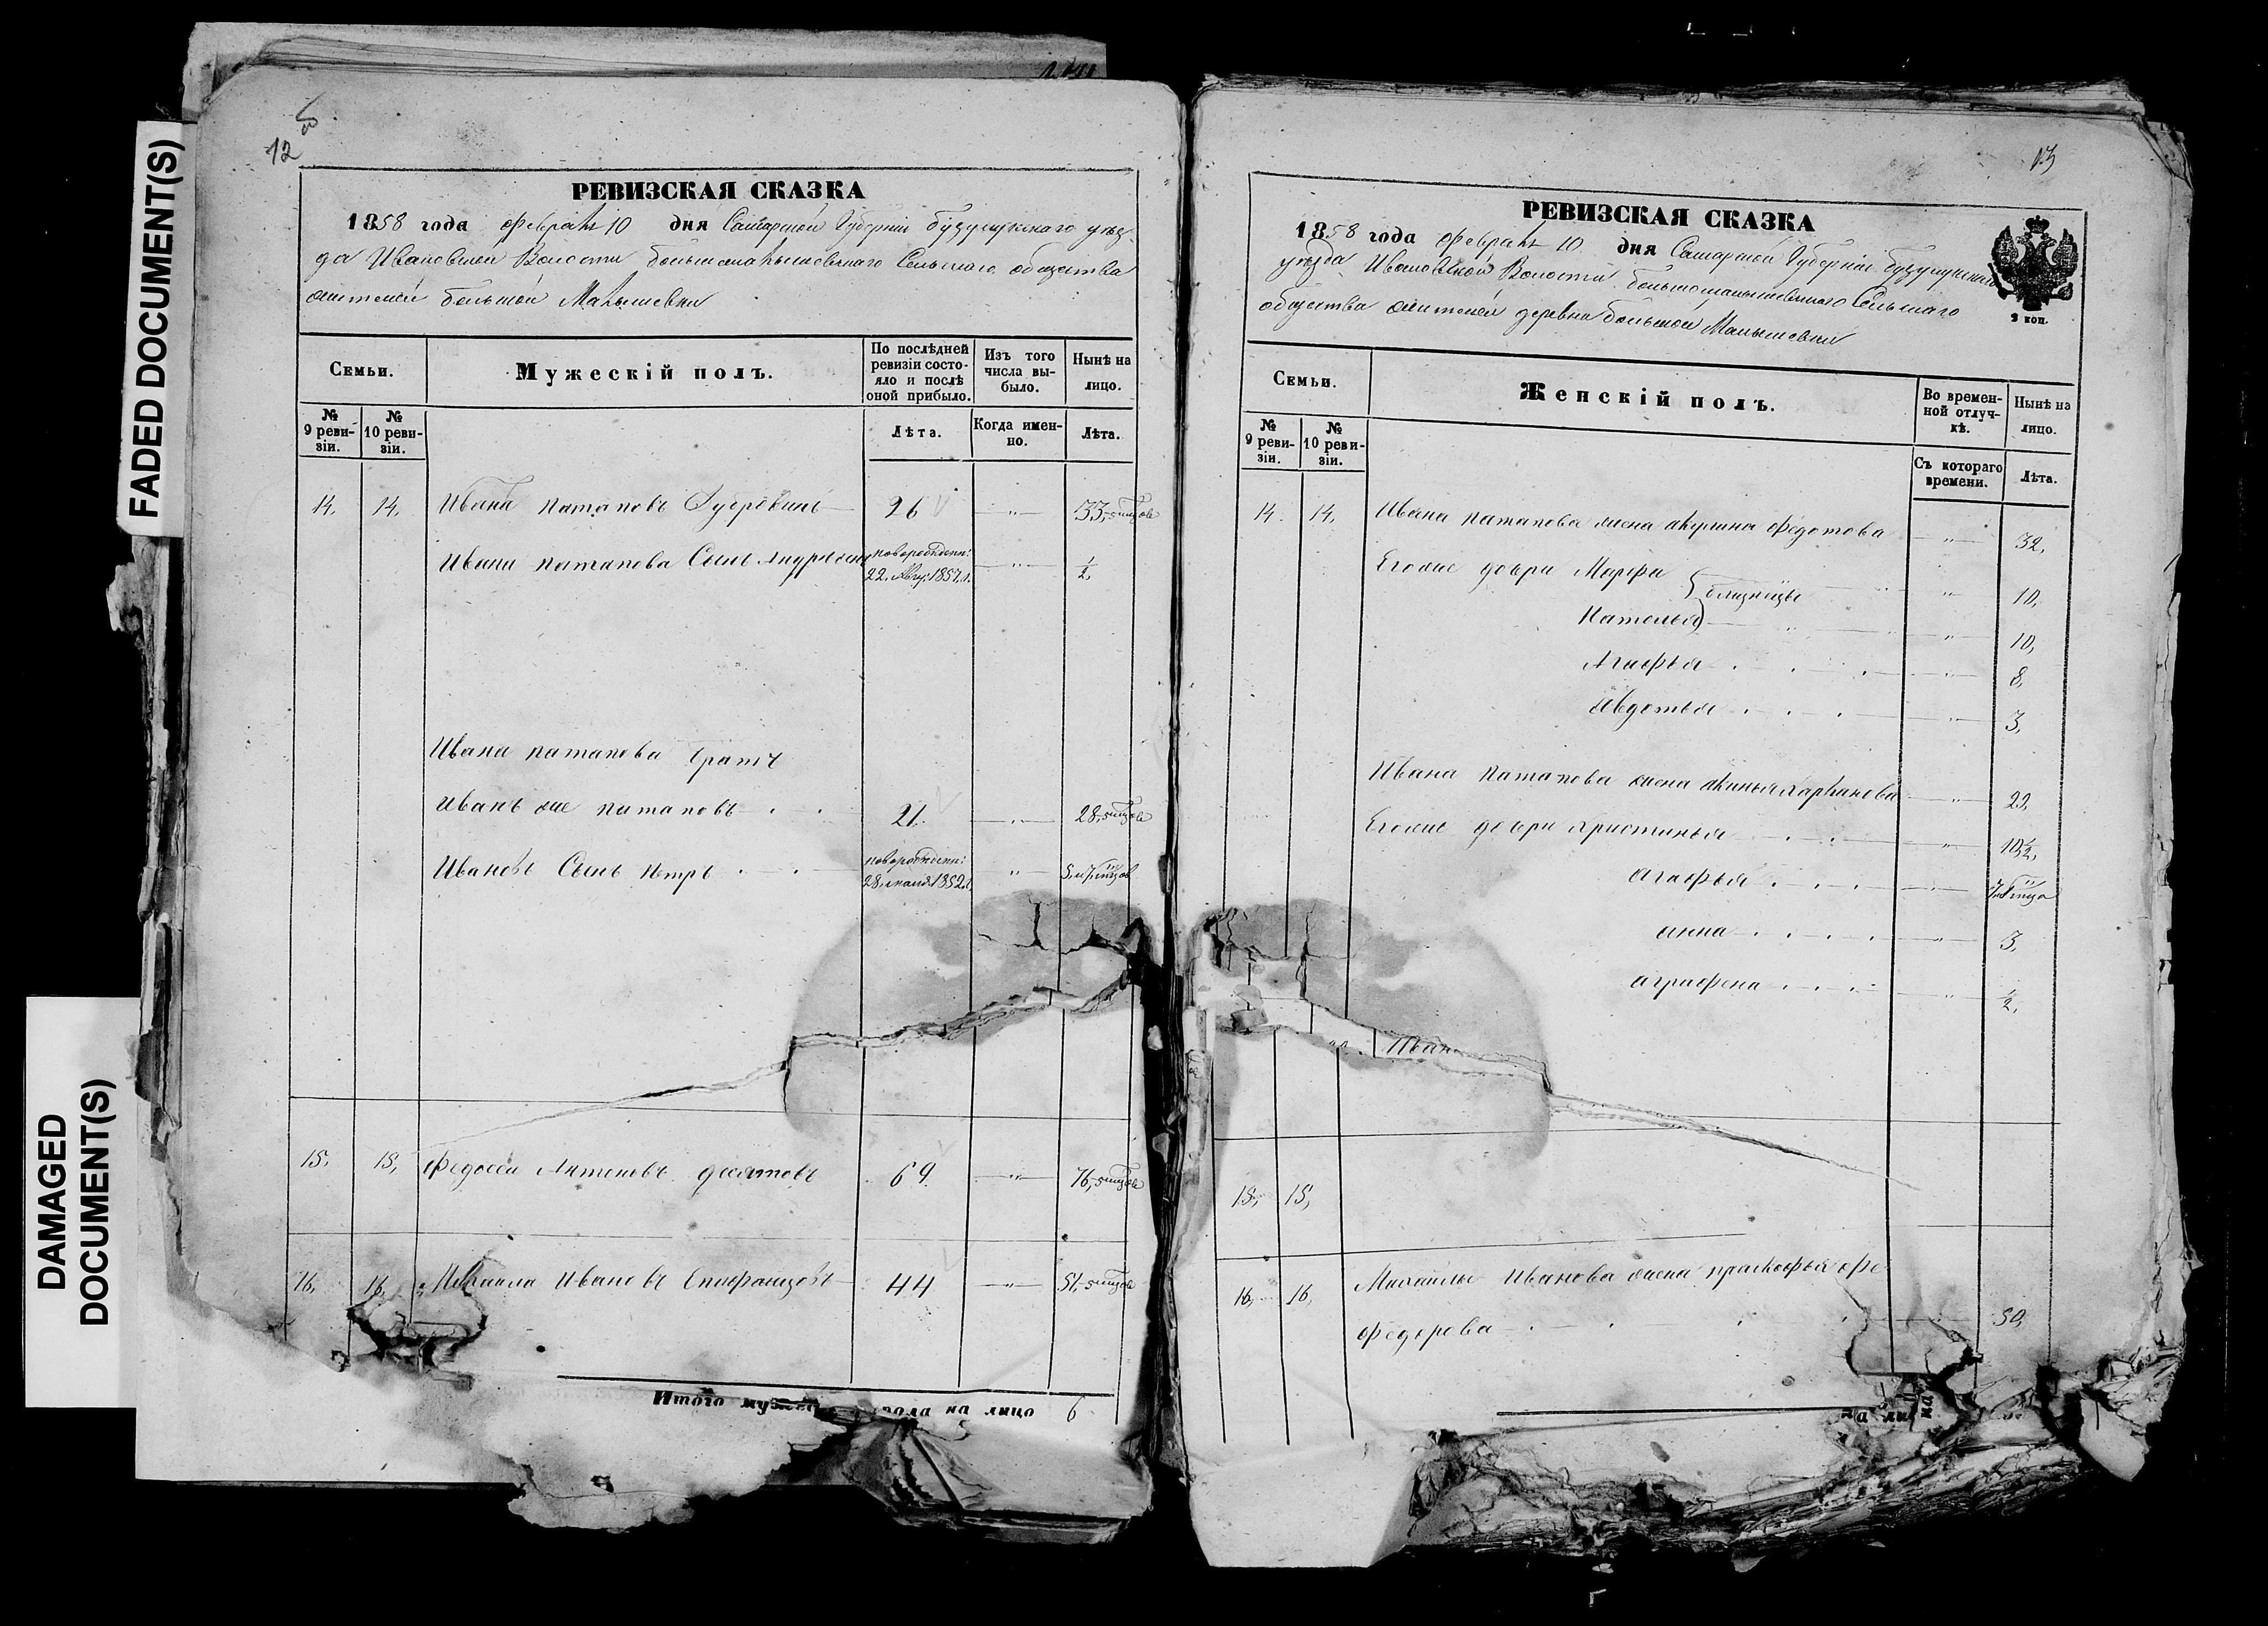 FADED DOCUMENT(S)
DAMAGED
DOCUMENT(S)
12
РЕВИЗСКАЯ СКАЗКА
1858 года февраля 10 дня Самарской Губерніи бузулукскаго уѣз-
да Ивановской Волости большемалышевскаго Сельскаго общества
жителей большой Малышевки
Семьи.
Мужескій полъ.
По послѣдней
ревизіи состо-
яло и послѣ
оной прибыло.
Изъ того
числа вы-
было.
Нынѣ на
лицо.
№
9 реви-
зіи.
№
10 реви-
зіи.
Лѣта.
Когда имен-
но.
Лѣта.
14. 14. Ивана Патаповъ 26 — „ — 33,
Ивана патапова Сынъ новорожден: — „ — ½,
22. Авг. 1857.
Ивана патапова братъ
Иванъ же патаповъ 21. — „ — 28,
Ивановъ Сынъ Петръ новорожден: „
28. 1852.
15. 15, федосеи Антоновъ 69. — „ — 76,
16, 16, Михаила Ивановъ 44 — „ — 51,
Итого пола на лицо 6
13
РЕВИЗСКАЯ СКАЗКА
1858 года февраля 10 дня Самарской Губерніи бузулукскаго
уѣзда Ивановской Волости большемалышевскаго Сельскаго
общества жителей деревни большой Малышевки
2 коп.
Семьи.
Женскій полъ.
Во времен-
ной отлуч-
кѣ.
Нынѣ на
лицо.
№
9 реви-
зіи.
№
10 реви-
зіи.
Съ котораго
времени.
Лѣта.
14. 14. Ивана патапова жена акулина федотова — „ — 32,
Егоже дочри Марфа } близнецы „ 10,
Наталья „ 10,
Агафья „ 8,
авдотья „ 3,
Ивана патапова жена — „ — 29,
Егоже дочри Христинья „ 10½,
агафья „
анна „ 3,
аграфена „ ½,
15, 15,
16, 16, Михаилы Иванова жена прасковья фе
федорова 50,